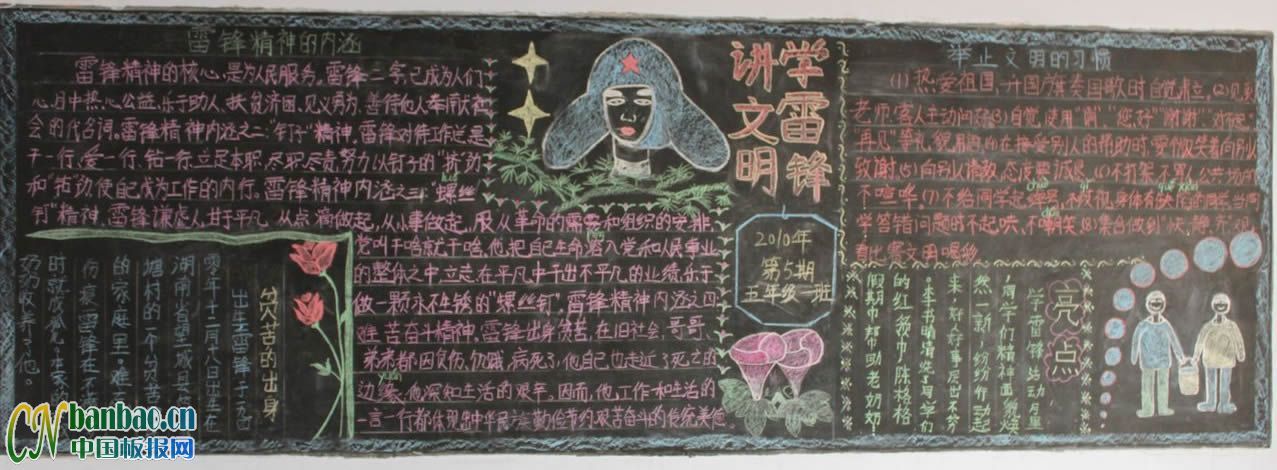 雷锋精神的内涵
雷锋精神的核心,是为人民服务。雷锋二字,已成为人们
心目中热心公益、乐于助人、扶贫济困、见义勇为、善待他人、奉献社
会的代名词。雷锋精神内涵之二"钉子"精神。雷锋对待工作总是
干一行,爱一行,钻一行,立足本职,尽职尽责,努力以钉子的"挤"劲
和"钻"劲使自己成为工作的内行。雷锋精神内涵之三"螺丝
钉"精神。雷锋谦虚人,甘于平凡,从点滴做起,从小事做起,服从革命的需要和组织的安排,
党叫干啥就干啥。他把自己生命溶入党和人民事业
的整体之中,立志在平凡中干出不平凡的业绩,乐于
做一颗永不生锈的"螺丝钉"。雷锋精神内涵之四
艰苦奋斗精神。雷锋出身贫苦,在旧社会,哥哥、
弟弟都因负伤、饥饿、病死了,他自己也走近了死亡的
边缘,他深知生活的艰辛。因而,他工作和生活的
一言一行都体现出中华民族勤俭节约,艰苦奋斗的传统美德。
贫苦的出身
出生雷锋于一九四
零年十二月八日出生在
湖南省望城县
塘村的一个贫苦
的家庭里,难
雷锋在不
时就成孤儿
奶收养了他。
学雷锋
讲文明
2010年
第5期
五年级一班
举止文明的习惯
(1)热爱祖国,升国旗奏国歌时自觉肃立。(2)见到
老师、客人主动问好(3)自觉使用"请""您好""谢谢""对不起"
"再见"等礼貌用语,在接受别人的帮助时,要微笑着向别人
致谢。(5)向别人请教,态度要诚恳。(6)不打架不骂人,公共场所
不喧哗。(7)不给同学起绰号,不歧视身体有缺陷的同学,当同
学答错问题时不起哄,不嘲笑。(8)集合做到快,静,齐,观
看比赛文明喝彩
亮点
学雷锋活动月里
同学们精神面貌焕
然一新,纷纷行动起
来,好人好事层出不穷
李书明清洗了同学们
的红领巾,陈格格
假期中帮助老奶奶
CN banbao.cn
中国板报网